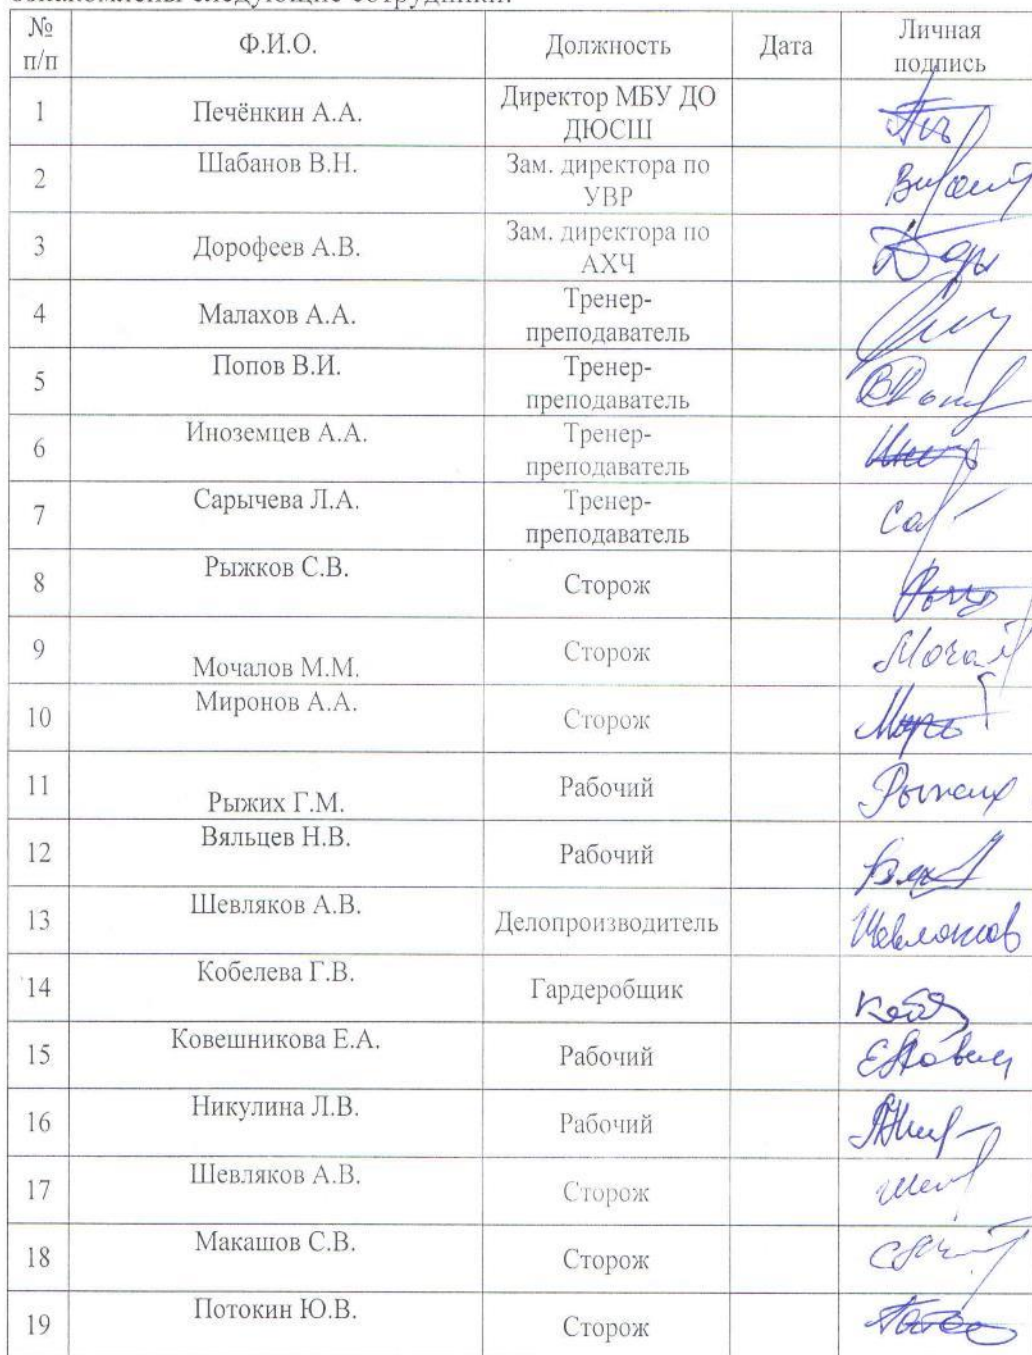 ознакомлены следующие сотрудники:
№ п/п Ф.И.О. Должность Дата Личная подпись
1 Печёнкин А.А. Директор МБУ ДО ДЮСШ
2 Шабанов В.Н. Зам. директора по УВР
3 Дорофеев А.В. Зам. директора по АХЧ
4 Малахов А.А. Тренер-преподаватель
5 Попов В.И. Тренер-преподаватель
6 Иноземцев А.А. Тренер-преподаватель
7 Сарычева Л.А. Тренер-преподаватель
8 Рыжков С.В. Сторож
9 Мочалов М.М. Сторож
10 Миронов А.А. Сторож
11 Рыжих Г.М. Рабочий
12 Вяльцев Н.В. Рабочий
13 Шевляков А.В. Делопроизводитель Шевляков
14 Кобелева Г.В. Гардеробщик
15 Ковешникова Е.А. Рабочий
16 Никулина Л.В. Рабочий
17 Шевляков А.В. Сторож
18 Макашов С.В. Сторож
19 Потокин Ю.В. Сторож